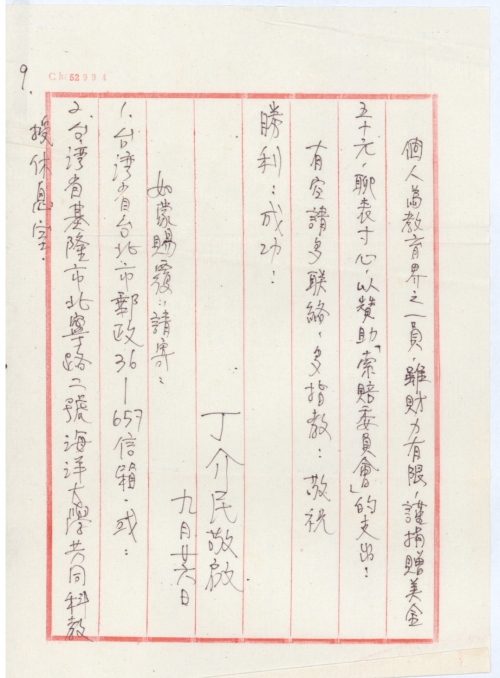 9.
Ch: 52994
個人為教育界之一員,雖財力有限,謹捐贈美金
五十元,聊表寸心,以贊助「索賠委員會」的支出!
有空請多聯絡,多指教!敬祝
勝利!成功!
丁介民敬啟
九月廿六日
如蒙賜覆,請寄:
1. 台灣省台北市郵政36—657信箱.或:
2. 台灣省基隆市北寧路二號海洋大學共同科教
授休息室.